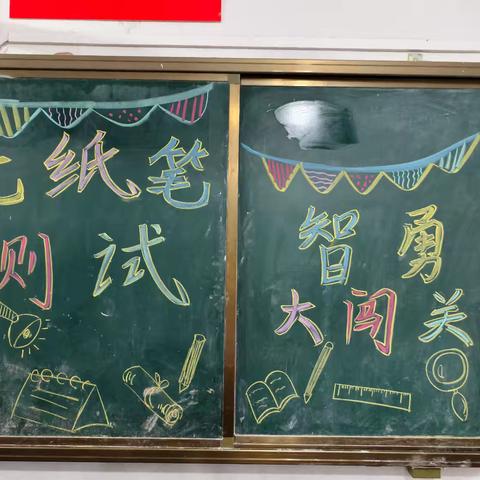 无纸笔
测试
智勇
大闯关